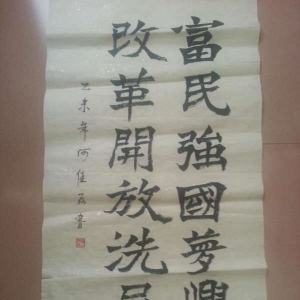 富民強國夢
改革開放洗
乙未年何